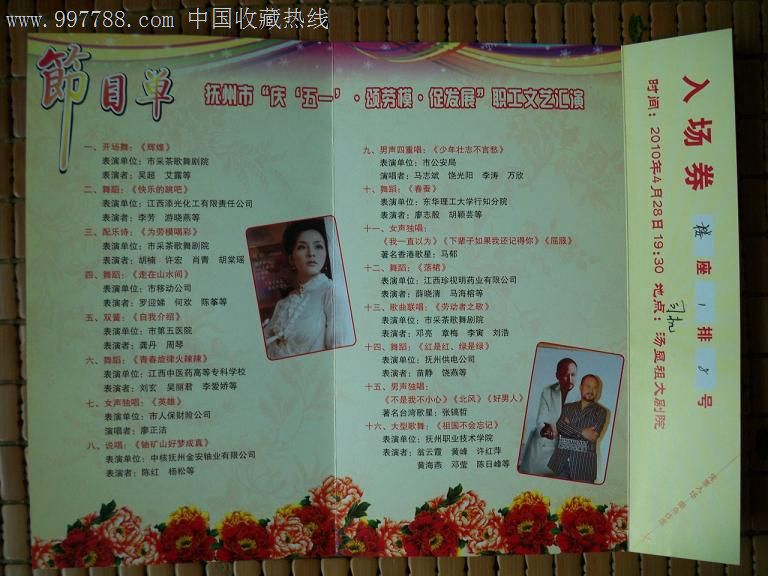 www.997788.com 中国收藏热线
節目单
抚州市“庆‘五一’·颂劳模·促发展”职工文艺汇演
一、开场舞：《辉煌》
表演单位：市采茶歌舞剧院
表演者：吴超 艾露等
二、舞蹈：《快乐的跳吧》
表演单位：江西添光化工有限责任公司
表演者：李芳 游晓燕等
三、配乐诗：《为劳模喝彩》
表演单位：市采茶歌舞剧院
表演者：胡楠 许宏 肖青 胡棠瑶
四、舞蹈：《走在山水间》
表演单位：市移动公司
表演者：罗迎娣 何欢 陈筝等
五、双簧：《自我介绍》
表演单位：市第五医院
表演者：龚丹 周琴
六、舞蹈：《青春旋律火辣辣》
表演单位：江西中医药高等专科学校
表演者：刘玄 吴丽君 李爱娇等
七、女声独唱：《英雄》
表演单位：市人保财险公司
演唱者：廖正洁
八、说唱：《铀矿山好梦成真》
表演单位：中核抚州金安铀业有限公司
表演者：陈红 杨松等
九、男声四重唱：《少年壮志不言愁》
表演单位：市公安局
演唱者：马志斌 饶光阳 李涛 万欣
十、舞蹈：《春蚕》
表演单位：东华理工大学行知分院
表演者：廖志殷 胡颖芸等
十一、女声独唱：
《我一直以为》《下辈子如果我还记得你》《屈服》
著名香港歌星：马郁
十二、舞蹈：《荡裙》
表演单位：江西珍视明药业有限公司
表演者：薛晓清 马海榕等
十三、歌曲联唱：《劳动者之歌》
表演单位：市采茶歌舞剧院
表演者：邓亮 章梅 李寅 刘浩
十四、舞蹈：《红是红、绿是绿》
表演单位：抚州供电公司
表演者：苗静 饶燕等
十五、男声独唱：
《不是我不小心》《北风》《好男人》
著名台湾歌星：张镐哲
十六、大型歌舞：《祖国不会忘记》
表演单位：抚州职业技术学院
表演者：翁云霞 黄峰 许红萍
黄海燕 邓莹 陈日峰等
入场券
楼座1排8号
时间：2010年4月28日19:30 地点：汤显祖大剧院